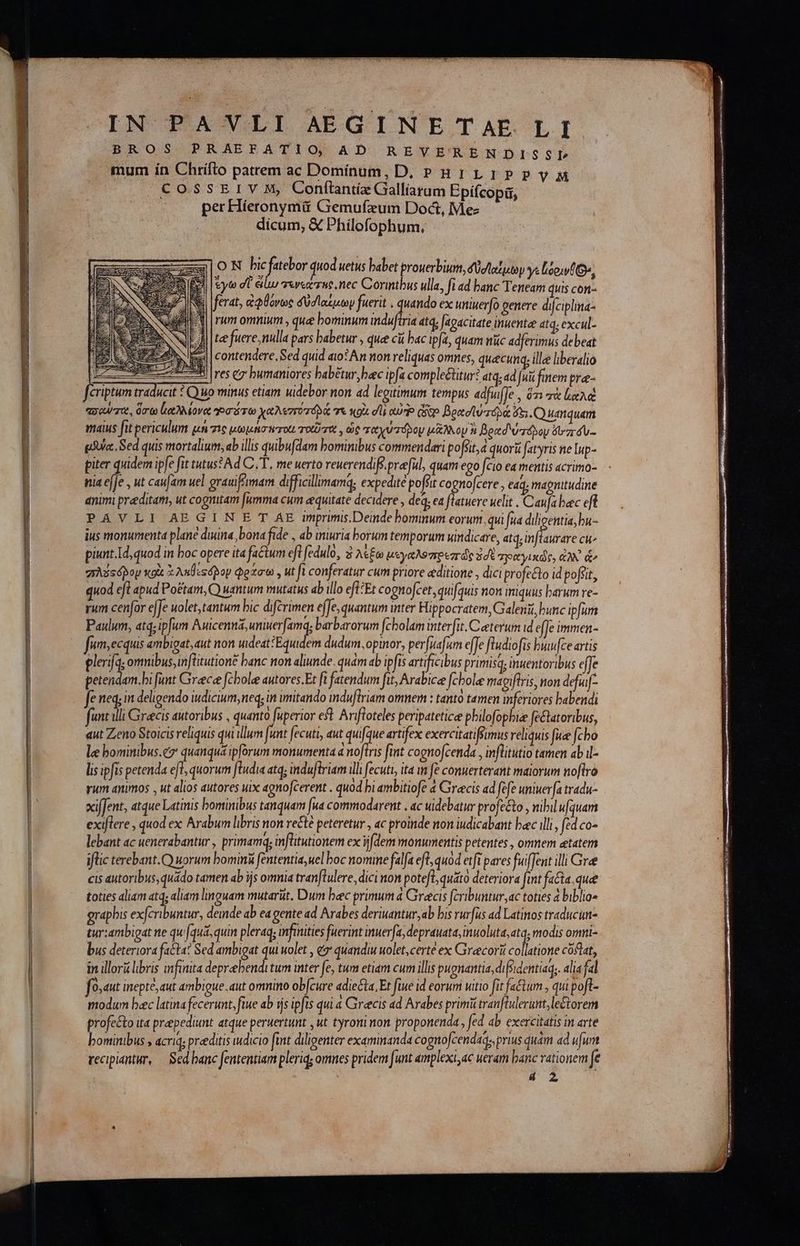 IN PAVLI AEGINETAE LI
BROS PRAEFATIO, AD REVERENDISSI-
mum in Chriſto patrem ac Dominum, D. PHILIPPVM
COSSEIVM, Conſtantiæ Galliarum Epiſcopũ,
per Hieronymũ Gemuſæum Doct, Me-
dicum, & Philoſophum.
ON hic fatebor quod uetus habet prouerbium,
nec Corinthus ulla, ſi ad hanc Teneam quis con-
ferat, fuerit . quando ex uniuerſo genere diſciplina-
rum omnium , quæ hominum induſtria atq; ſagacitate inuentæ atq; excul-
tæ fuere, nulla pars habetur , quæ cũ hac ipſa, quam nũc adſerimus debeat
contendere. Sed quid aio? An non reliquas omnes, quæcunq; illæ liberalio
res & humaniores habẽtur, hæc ipſa complectitur? atq; ad ſuũ finem præ-
ſcriptum traducit ? Quo minus etiam uidebor non ad legitimum tempus adfuiſſe ,
Quanquam
maius ſit periculum
Sed quis mortalium, ab illis quibuſdam hominibus commendari poſsit, à quorũ ſatyris ne Iup-
piter quidem ipſe ſit tutus? Ad C. T. me uerto reuerendiſs. præſul, quam ego ſcio ea mentis acrimo-
nia eſſe , ut cauſam uel grauiſsimam difficillimamq; expedite poſsit cognoſcere , eaq; magnitudine
animi præditam, ut cognitam ſumma cum æquitate decidere , deq; ea ſtatuere uelit . Cauſa hæc eſt
PAVLI AEGINETAE imprimis. Deinde hominum eorum, qui ſua diligentia, hu-
ius monumenta planè diuina, bona fide , ab iniuria horum temporum uindicare, atq; inſtaurare cu-
piunt. Id, quod in hoc opere ita factum eſt ſedulò,
ut ſi conferatur cum priore æditione , dici profecto id poſsit,
quod eſt apud Poëtam, Quantum mutatus ab illo eſt? Et cognoſcet, quiſquis non iniquus harum re-
rum cenſor eſſe uolet, tantum hic diſcrimen eſſe, quantum inter Hippocratem, Galenũ, hunc ipſum
Paulum, atq; ipſum Auicennã, uniuerſamq; barbarorum ſcholam interſit. Cæterum id eſſe immen-
ſum, ecquis ambigat, aut non uideat? Equidem dudum, opinor, perſuaſum eſſe ſtudioſis huiuſce artis
pleriſq; omnibus, inſtitutionẽ hanc non aliunde, quàm ab ipſis artificibus primisq; inuentoribus eſſe
petendam. hi ſunt Græcæ ſcholæ autores. Et ſi fatendum ſit, Arabicæ ſcholæ magiſtris, non defuiſ-
ſe neq; in deligendo iudicium, neq; in imitando induſtriam omnem : tantò tamen inferiores habendi
ſunt illi Græcis autoribus , quantò ſuperior eſt Ariſtoteles peripateticæ philoſophiæ ſectatoribus,
aut Zeno Stoicis reliquis qui illum ſunt ſecuti, aut quiſque artifex exercitatiſsimus reliquis ſuæ ſcho
læ hominibus. & quanquã ipſorum monumenta à noſtris ſint cognoſcenda , inſtitutio tamen ab il-
lis ipſis petenda eſt, quorum ſtudia atq; induſtriam illi ſecuti, ita in ſe conuerterant maiorum noſtro
rum animos , ut alios autores uix agnoſcerent . quòd hi ambitioſe à Græcis ad ſeſe uniuerſa tradu-
xiſſent, atque Latinis hominibus tanquam ſua commodarent . ac uidebatur profecto , nihil uſquam
exiſtere , quod ex Arabum libris non recte peteretur , ac proinde non iudicabant hæc illi , ſed co-
lebant ac uenerabantur , primamq; inſtitutionem ex ijſdem monumentis petentes , omnem ætatem
iſtic terebant. Quorum hominũ ſententia, uel hoc nomine falſa eſt, quòd etſi pares fuiſſent illi Græ
cis autoribus, quãdo tamen ab ijs omnia tranſtulere, dici non poteſt, quãto deteriora ſint facta, quæ
toties aliam atq; aliam linguam mutarũt. Dum hæc primum à Græcis ſcribuntur, ac toties à biblio-
graphis exſcribuntur, deinde ab ea gente ad Arabes deriuantur, ab his rurſus ad Latinos traducun-
tur: ambigat ne quiſquã, quin pleraq; infinities fuerint inuerſa, deprauata, inuoluta, atq; modis omni-
bus deteriora facta? Sed ambigat qui uolet , & quandiu uolet, certè ex Græcorũ collatione cõſtat,
in illorũ libris infinita depræhendi tum inter ſe, tum etiam cum illis pugnantia, diſsidentiaq;, alia fal
ſò, aut ineptè, aut ambigue, aut omnino obſcure adiecta. Et ſiue id eorum uitio ſit factum , qui poſt-
modum hæc latina fecerunt, ſiue ab ijs ipſis qui à Græcis ad Arabes primũ tranſtulerunt, lectorem
profecto ita præpediunt atque peruertunt , ut tyroni non proponenda , ſed ab exercitatis in arte
hominibus , acriq; præditis iudicio ſint diligenter examinanda cognoſcendaq;, prius quàm ad uſum
recipiantur. Sed hanc ſententiam pleriq; omnes pridem ſunt amplexi, ac ueram hanc rationem ſe
a 2